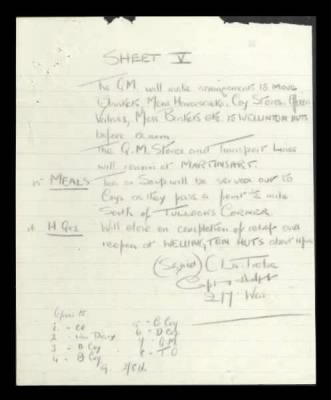 SHEET V
The QM will make arrangements to move
Blankets, Mens Haversacks, Coy Stores, Officers
Valises, Mess Baskets etc. to WELLINTON HUTS
before
The Q.M. Stores and Transport Lines
will remain at MARTINSART.
MEALS Tea or Soup will be served out to
Coys as they pass a point ½ mile
South of TULLOCHS CORNER.
H Qrs Will close on completion of relief and
reopen at WELLINGTON HUTS about
(Signed) C
Capt Adjt
2/7 War
Copies to
1 - CO
2 - War Diary
3 - A Coy
4 - B Coy
5 - C Coy
6 - D Coy
7 - QM
8 - T O
9